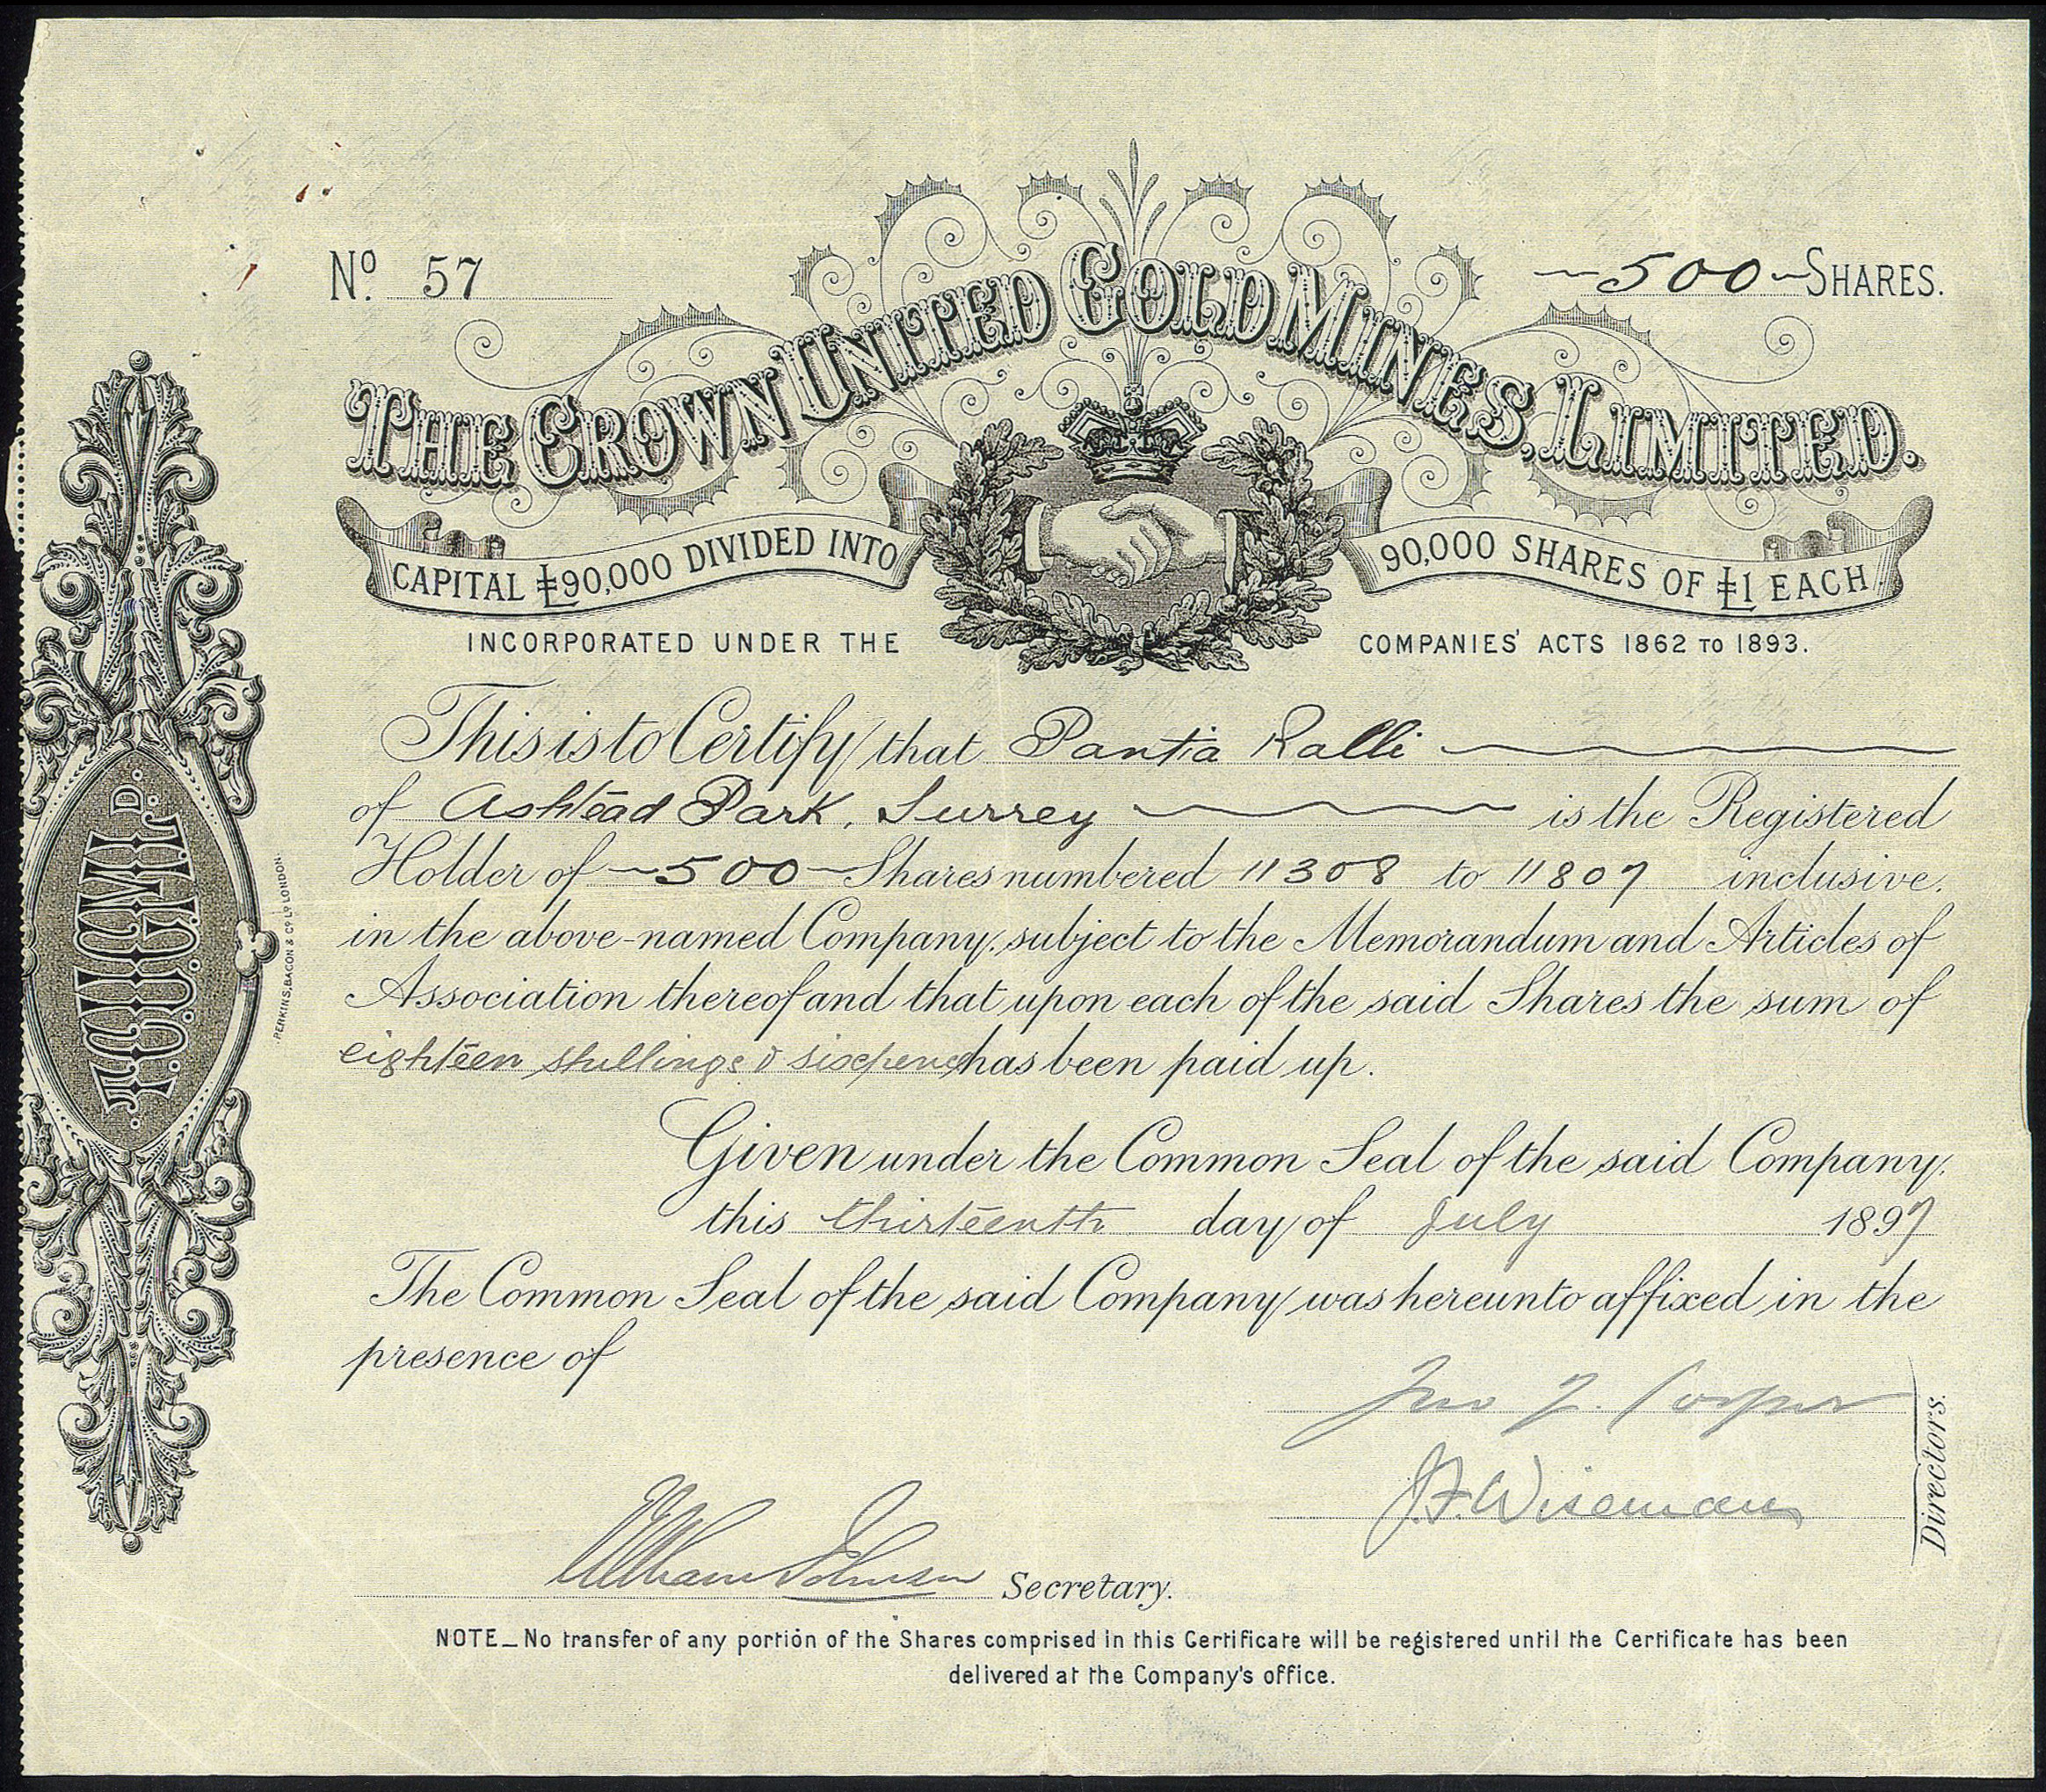 Nº. 57
500 SHARES.
THE CROWN UNITED GOLD MINES, LIMITED.
CAPITAL £90,000 DIVIDED INTO 90,000 SHARES OF £1 EACH
INCORPORATED UNDER THE COMPANIES' ACTS 1862 TO 1893.
This is to Certify that Pantia Ralli
of Ashtead Park, Surrey is the Registered
Holder of 500 Shares numbered 11308 to 11807 inclusive.
in the above-named Company, subject to the Memorandum and Articles of
Association thereof and that upon each of the said Shares the sum of
eighteen shillings & sixpence has been paid up.
Given under the Common Seal of the said Company,
this thirteenth day of July 1897
The Common Seal of the said Company was hereunto affixed in the
presence of
Jno Cooper
J.F. Wiseman
Directors.
William Johnson Secretary.
NOTE_ No transfer of any portion of the Shares comprised in this Certificate will be registered until the Certificate has been
delivered at the Company's office.
T.C.U.G.M.L.D.
PERKINS, BACON & CO LD LONDON.